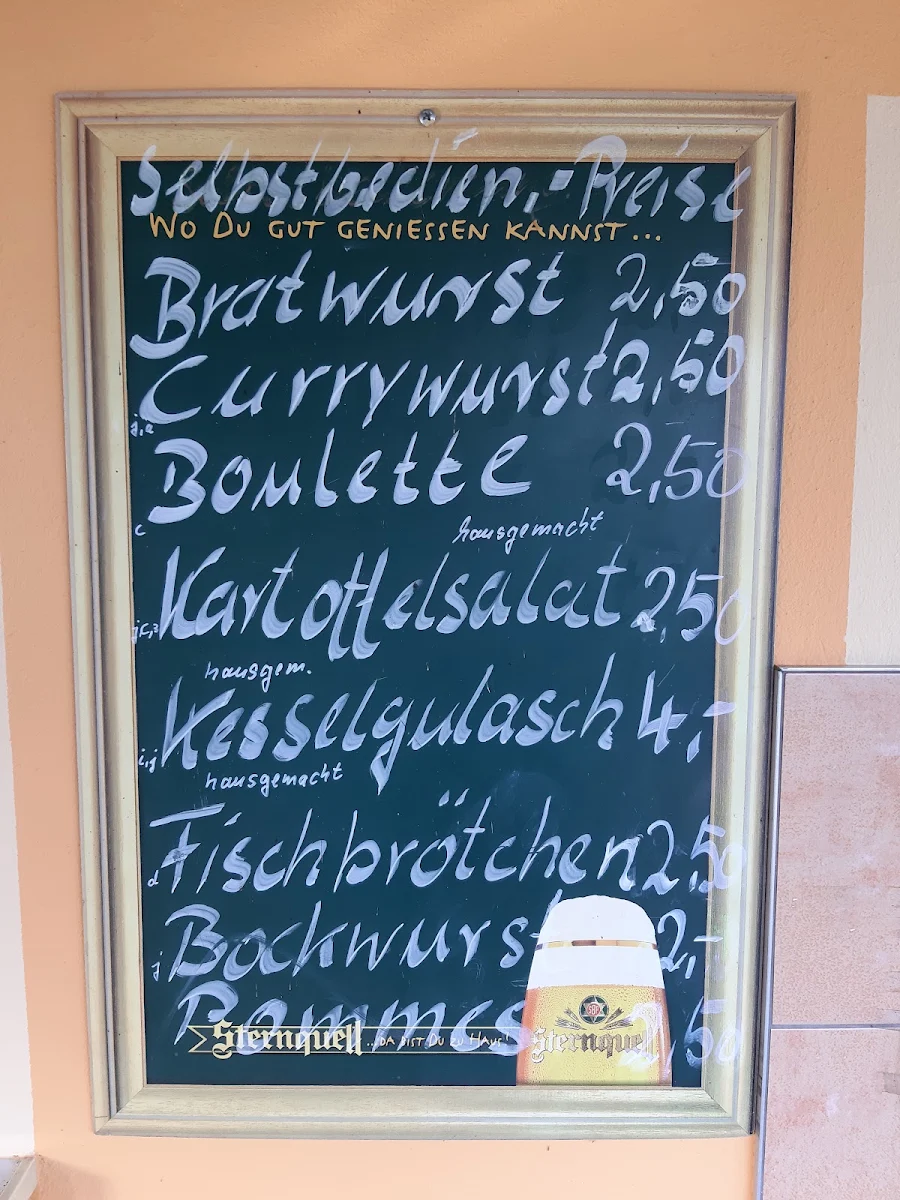 Selbstbedien.-Preise
WO DU GUT GENIESSEN KANNST...
Bratwurst 2,50
Currywurst 2,50
j,a
Boulette 2,50
c
hausgemacht
Kartoffelsalat 2,50
hausgem.
Kesselgulasch 4,-
i,j
hausgemacht
Fischbrötchen 2,50
d
Bockwurst 2,-
j
Pommes 2,50
Sternquell ...DA BIST DU ZU HAUS!
Sternquell